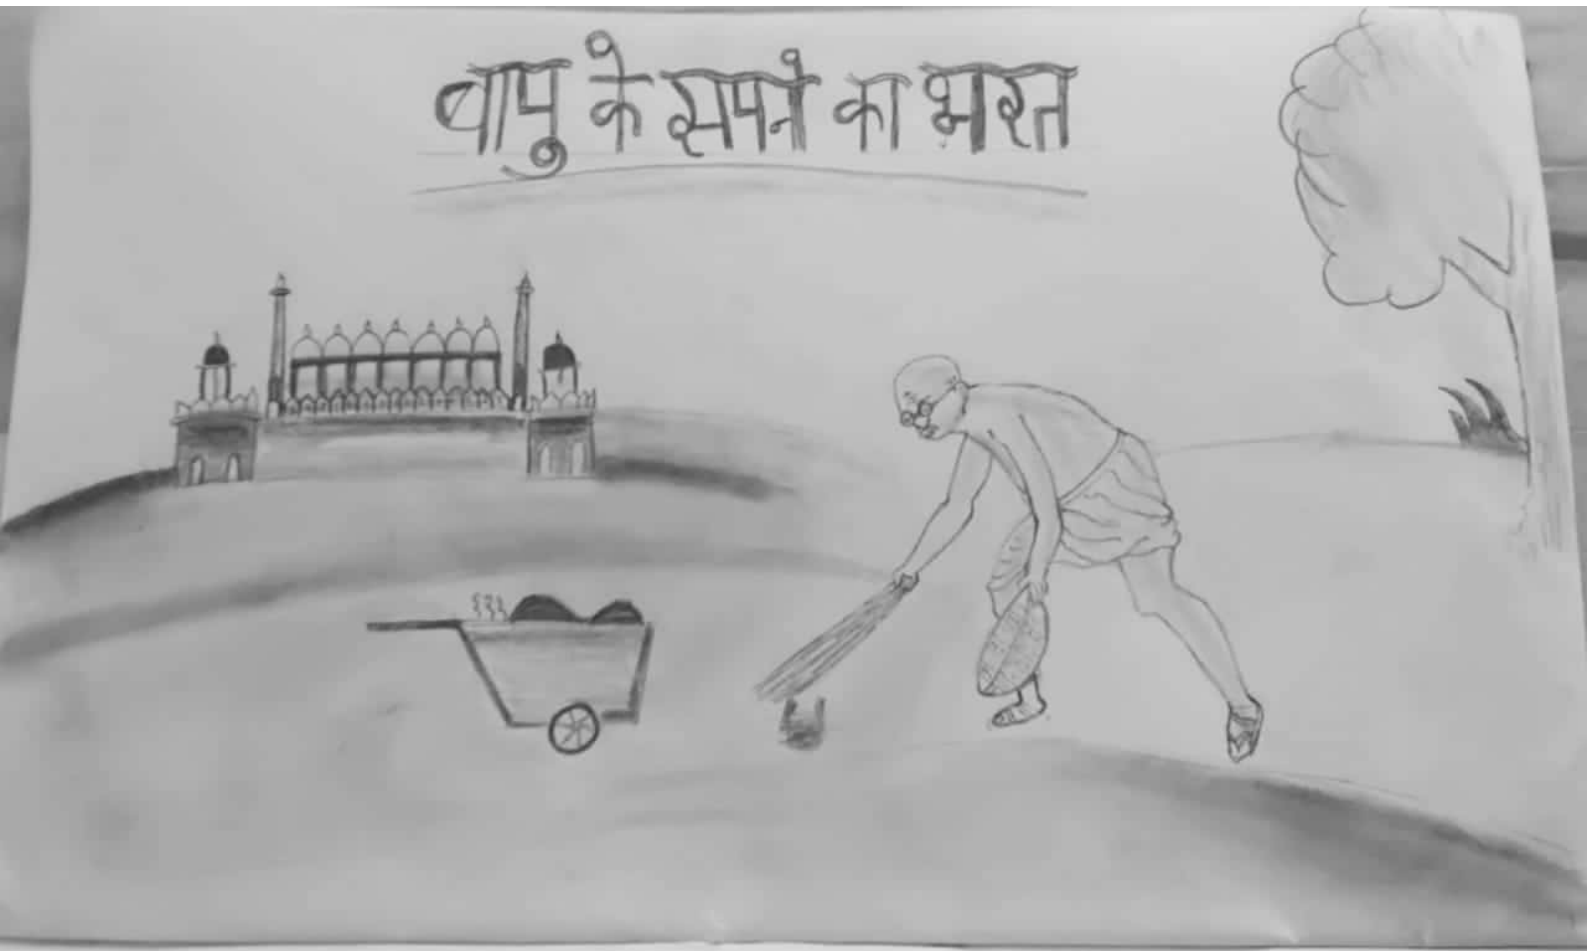 बापु के सपने का भारत